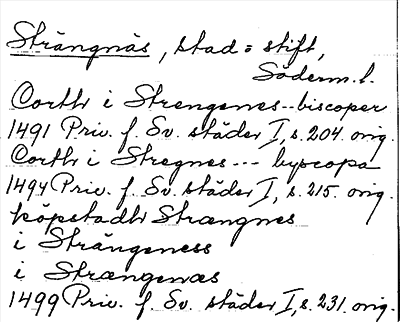 Strängnäs, stad = stift,
Söderm.l.
Corthr i Strengenes--biscoper
1491 Priv. f. Sv. städer I, s. 204. orig.
Corthr i Stregnes --- byscopa
1494 Priv. f. Sv. städer I, s. 215. orig.
köpstadhr Strængnes
i Strängeness
i Strængenæs
1499 Priv. f. Sv. städer I, s. 231. orig.